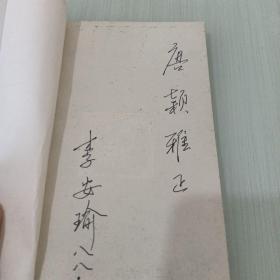 唐颖雅正
李安瑜
八八.